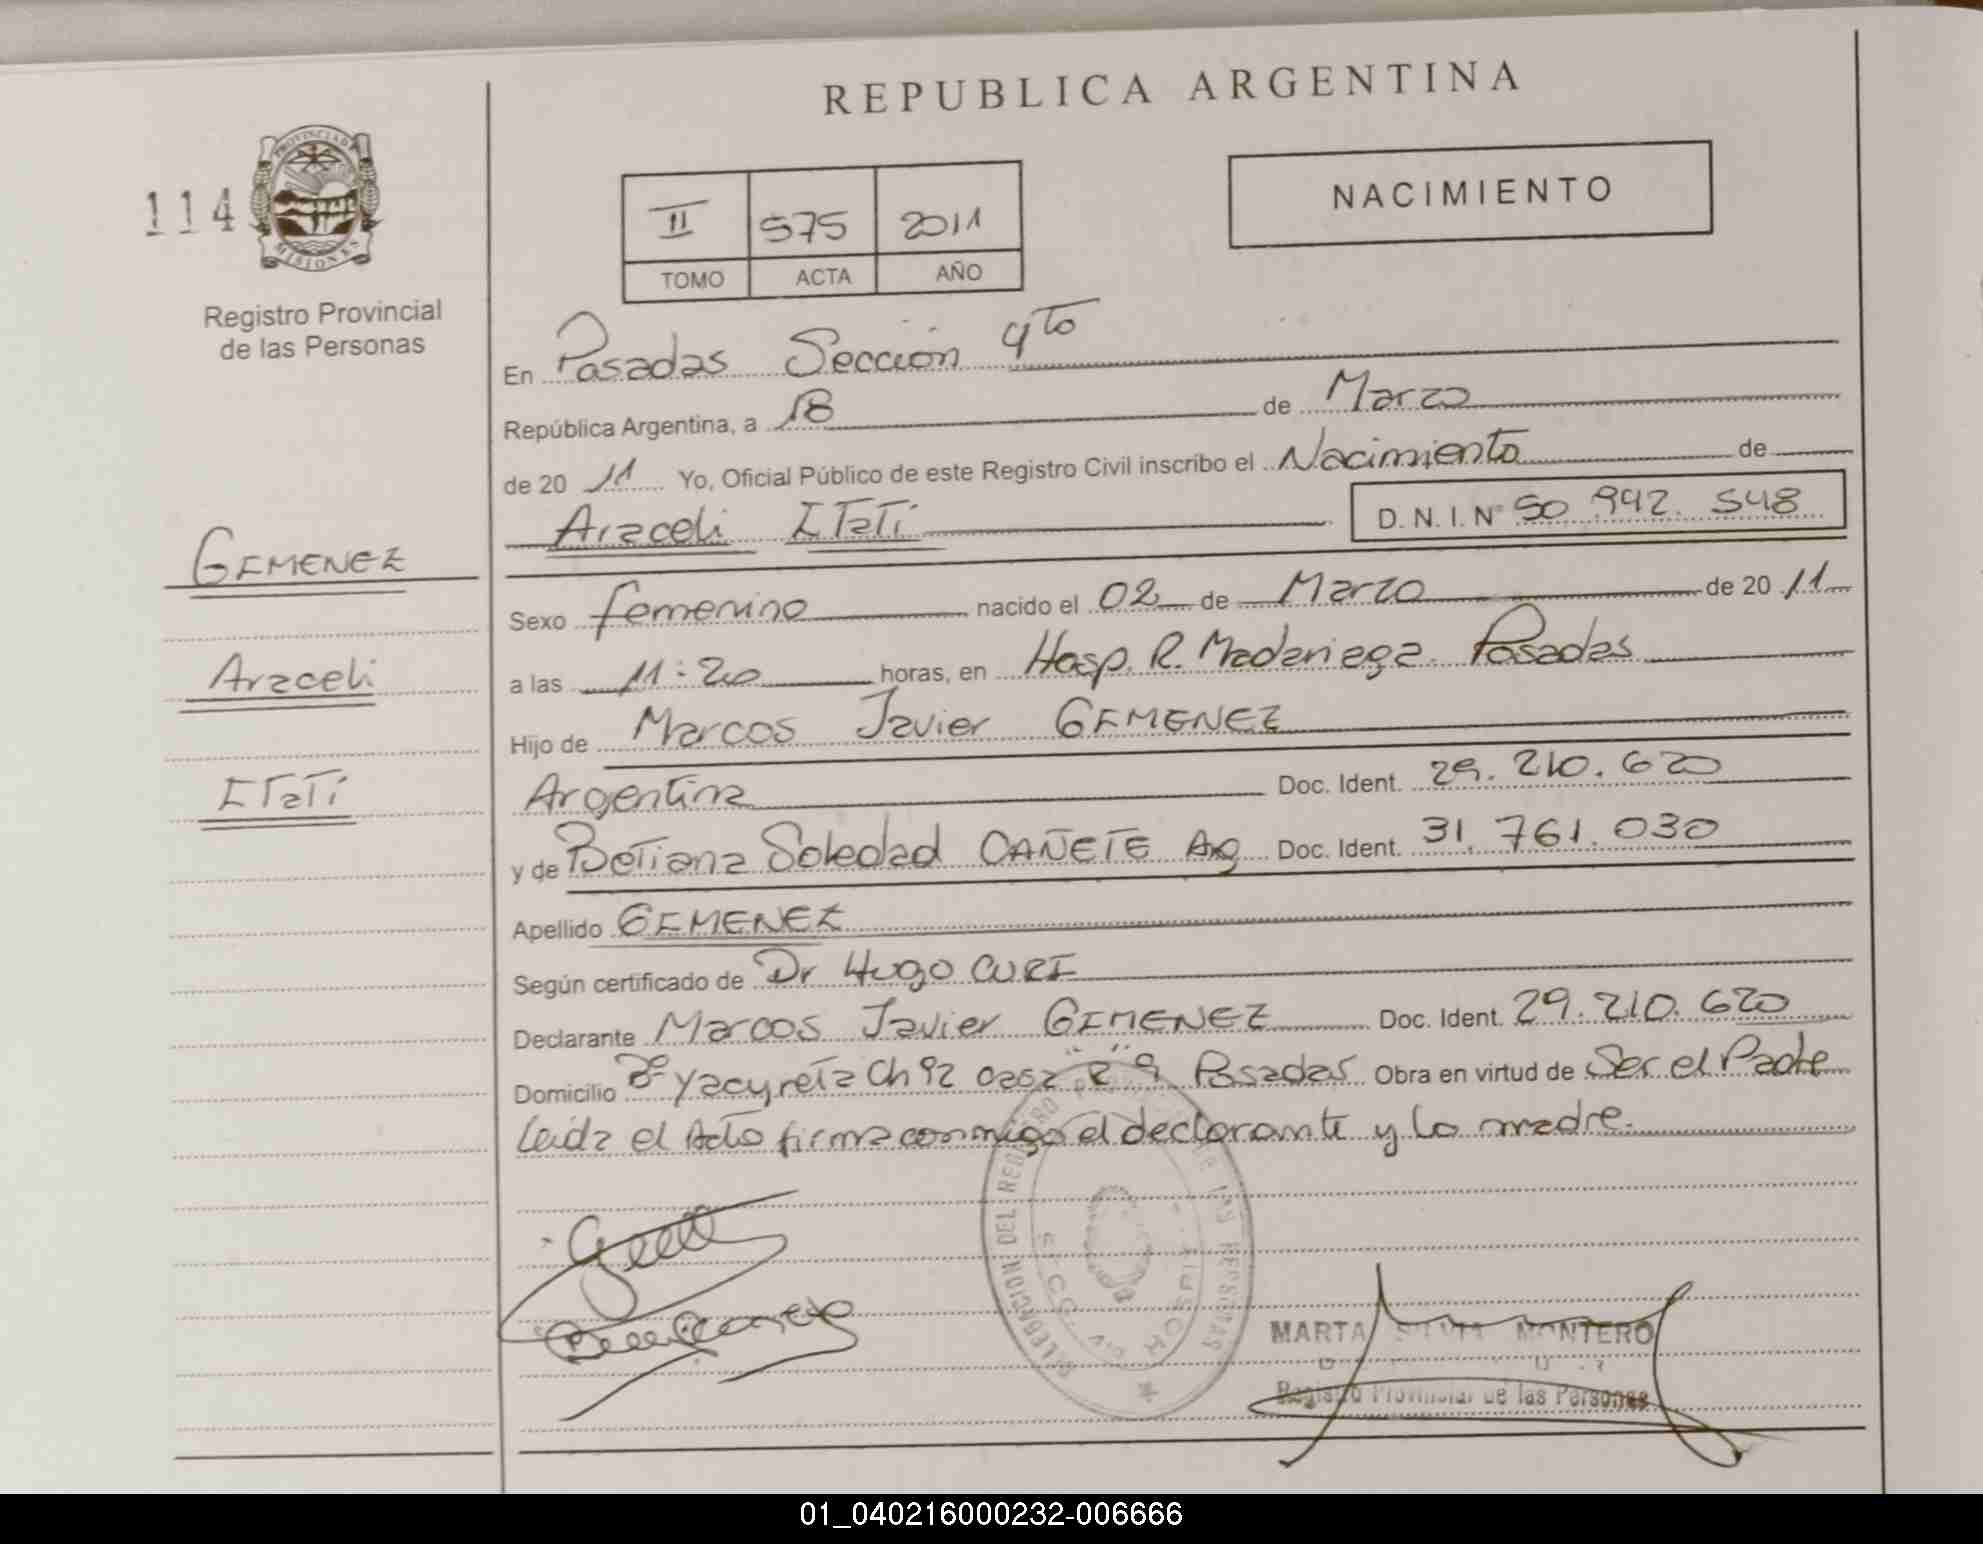 REPUBLICA ARGENTINA
114
PROVINCIA DE
MISIONES
Registro Provincial
de las Personas
II 575 2011
TOMO ACTA AÑO
NACIMIENTO
En Posadas Sección 4to
República Argentina, a 18 de Marzo
de 20 11 Yo, Oficial Público de este Registro Civil inscribo el Nacimiento de
Araceli ITATI D. N. I. N° 50.942.548
GIMENEZ
Araceli
ITATI
Sexo femenino nacido el 02 de Marzo de 20 11
a las 11:20 horas, en Hosp. R. Madariaga. Posadas
Hijo de Marcos Javier GIMENEZ
Argentina Doc. Ident. 29.210.620
y de Betiana Soledad CAÑETE Arg Doc. Ident. 31.761.030
Apellido GIMENEZ
Según certificado de Dr Hugo CURI
Declarante Marcos Javier GIMENEZ Doc. Ident. 29.210.620
Domicilio Bº Yacyreta Ch 92 casa 9 Posadas Obra en virtud de Ser el Padre
Leida el Acta firma conmigo el declarante y la madre.
DELEGACION DEL REGISTRO DE LAS PERSONAS
MARTA SILVIA MONTERO
Registro Provincial de las Personas
01_040216000232-006666